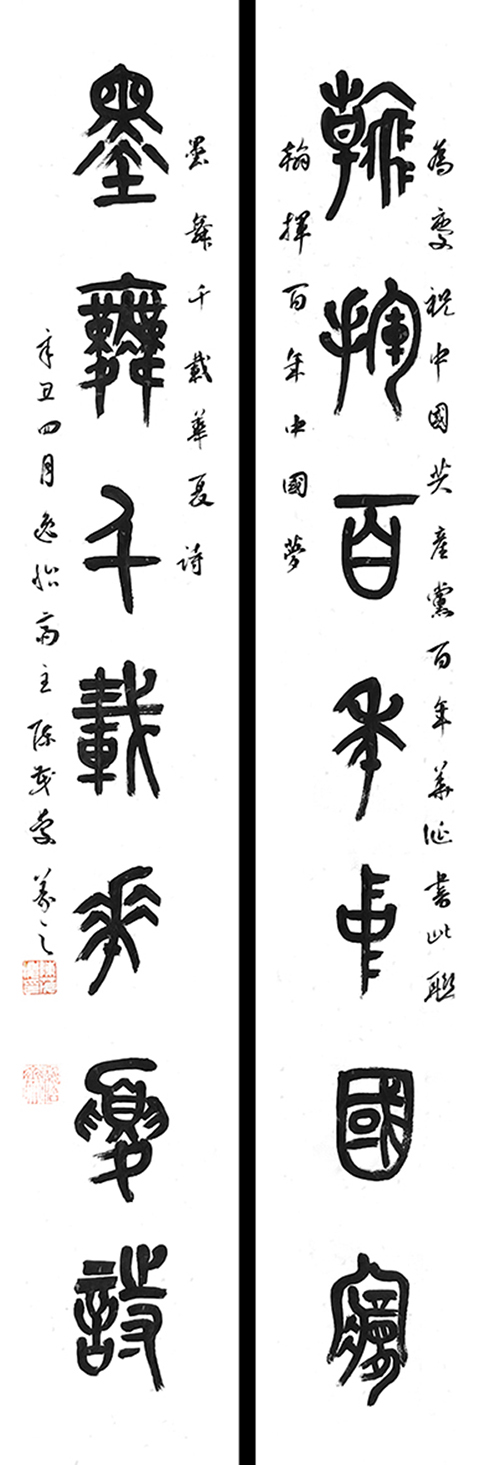 為慶祝中國共產黨百年華誕書此聯
翰揮百年中國夢
翰揮百年中國夢
墨舞千載華夏詩
墨舞千載華夏詩
辛丑四月怡齋主陳茂篆之